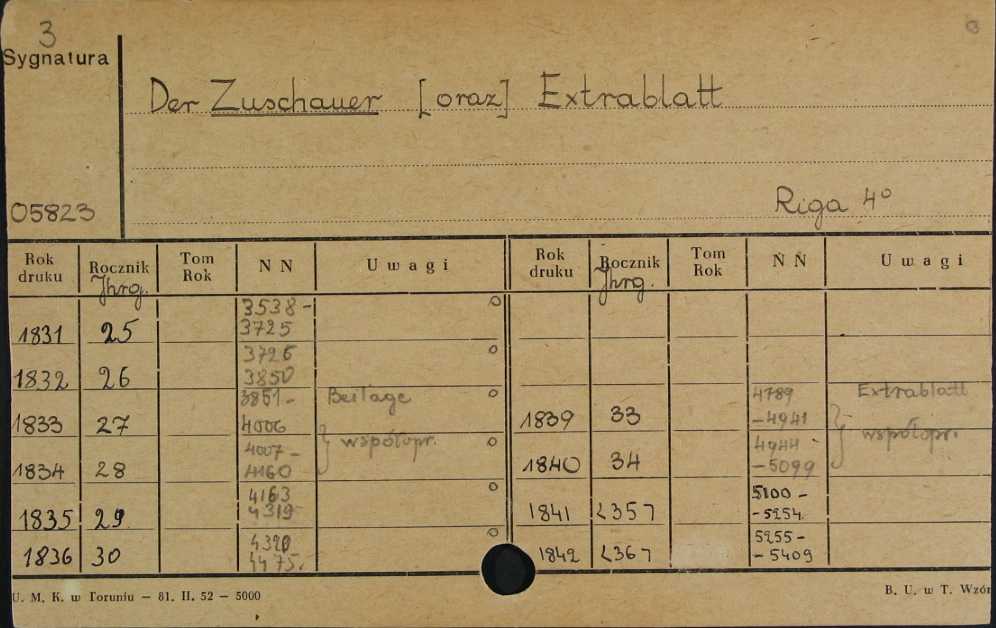 3
Sygnatura
Der Zuschauer [oraz] Extrablatt
05823
Riga 4º
Rok druku Rocznik Jhrg. Tom Rok N N Uwagi Rok druku Rocznik Jhrg. Tom Rok N N Uwagi
1831 25 3538 - 3725
1832 26 3726 3850
1833 27 3851 - 4006 Beilage
1839 33 4789 - 4941 Extrablatt
1834 28 4007 - 4160 } współopr.
1840 34 4944 - 5099 } współopr.
1835 29 4163 4319
1841 <35> 5100 - - 5254
1836 30 4320 4475.
1842 <36> 5255 - - 5409
U. M. K. w Toruniu — 81. II. 52 — 5000
B. U. w T. Wzór